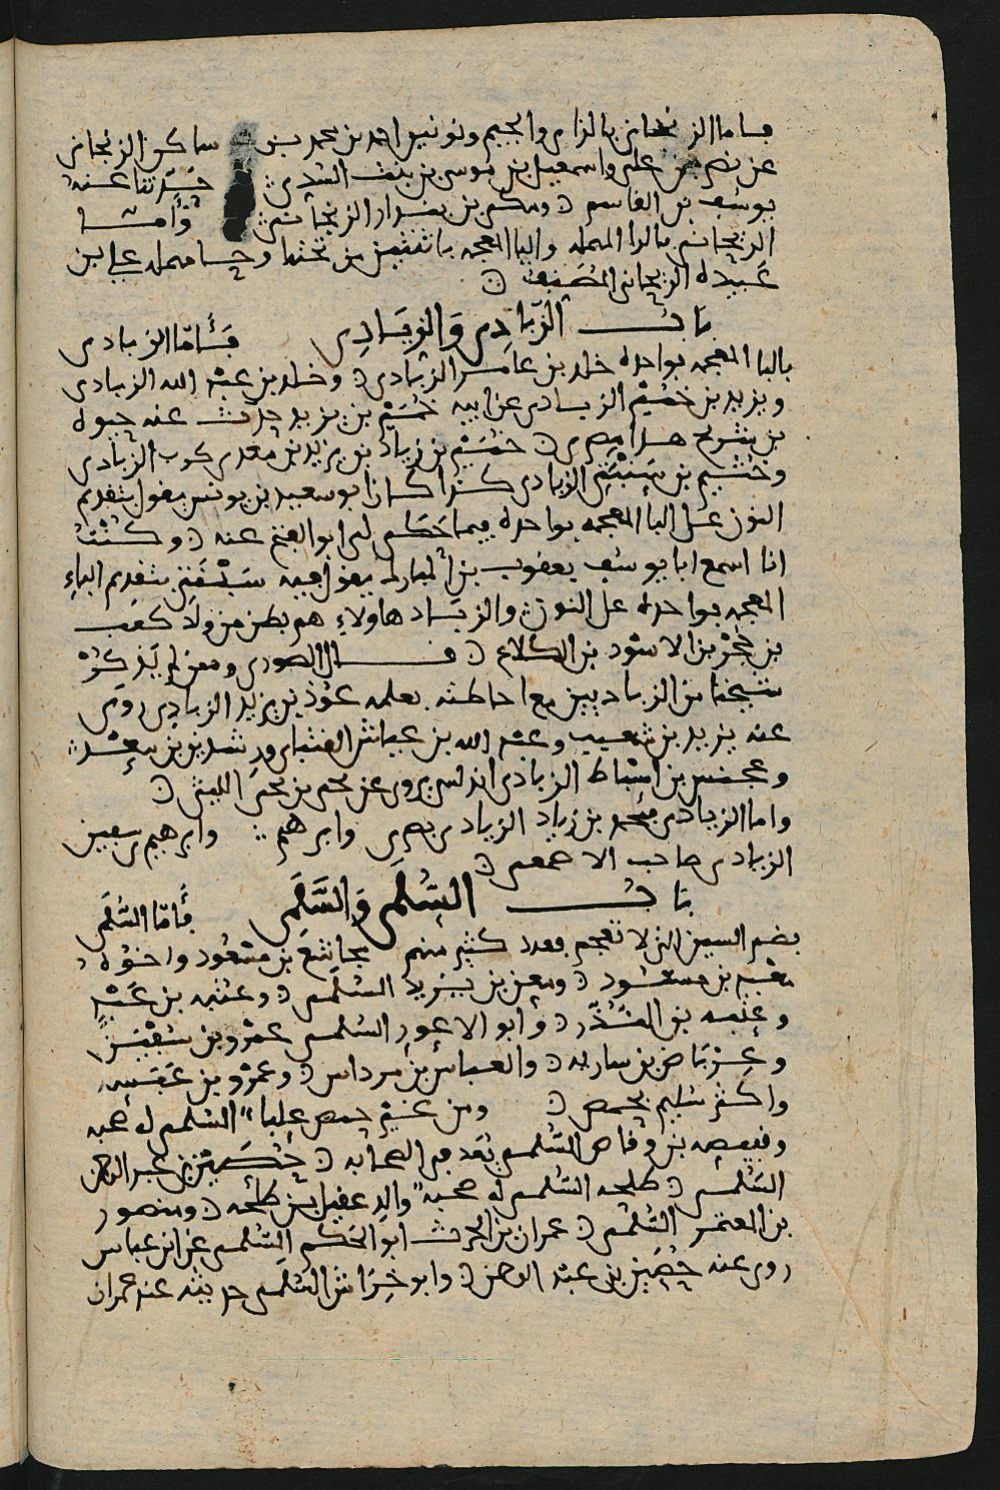 فاما الزنجاني بالزاي والجيم ونونين احمد بن محمد بن ساكن الزنجاني
عن نصر بن علي واسمعيل بن موسى بن بنت السدي حدثنا عنه
يوسف بن القاسم ومكي بن بندار الزنجاني وأما
الريحاني بالرا المهمله واليا المعجمه باثنتين من تحتها وحا مهمله علي بن
عبيده الريحاني المصنف
باب الزَّبَادِي وَالزِيَادِي فَأَمّا الزبادى
بالبا المعجمه بواحده خلد بن عامر الزبادي وخلد بن عبد الله الزبادى
ويزيد بن خُثيم الزبادى عن ابيه خُثيم بن يزيد حدث عنه حيوه
بن شريح هذا مصرى خثيم بن زياد بن يزيد بن معدى كرب الزبادى
وخثيم بن سَنْبَتَى الزبادى كذا كان ابو سعيد بن يونس يقول بتقديم
النون على البا المعجمه بواحده فيما حَكَى لى ابو الفتح عنه وكنْتُ
انا اسمع ابا يوسف يعقوب بن المبارك يقول فيه سَبَنْتَى بتقديم الباءِ
المعجمه بواحده على النون والزبَاد هاولاءِ هم بطن من ولَد كعب
بن حُجْر بن الاسْود بن الكلاع قال الصورى وممن لم يَذكُرْهُ
شيخنا من الزباديين مع احاطته بعلمه عَوْذ بن يزيد الزبادى روى
عنه يزيد بن شعيب وعبد الله بن عياش القتبانى ورشدين بن سعْد
ومحمد بن اسْباط الزبادى اندلسى يروى عن يحيى بن يحيى الليثى
واما الزيادى محمد بن زياد الزيادى بصرى وابرهيم وابرهيم بن سفين
الزيادى صاحب الاصمعى
بَابُ السُّلَمِى وَالسَّلَمِى فَأمّا السُّلَمى
بضم السين التى لا تعجم فعدد كثير منهم مجاشع بن مسْعُود واخوه
معْبد بن مسعُود ومعن بن يزيد السُّلَمى وعتبه بن عَبْدٍ
وعتبه بن النُّدَّر وأبو الاعور السُّلمى عمْرو بن سُفْيَن
وعِرْبَاض بن ساريه والعباس بن مرداس وعمرو بن عَبَسه
واكثر سُليم بحمص ومن غير حمص علباء السُّلمى له صحبه
وقبيصه بن وقاص السُّلمى يُعَد فى الصحابه حُصَيْن بن عبد الرحمن
السُّلمى طلحه السُّلمى له صحبه والد عقيل بن طلحه ومنصور
بن المعتمر السُّلمى عمران بن الحرث ابو الحَكم السُّلمى عن ابن عباس
روى عنه حُصَيْن بن عبد الرحمن وابو خِرَاش السُّلَمى حديثه عند عمران